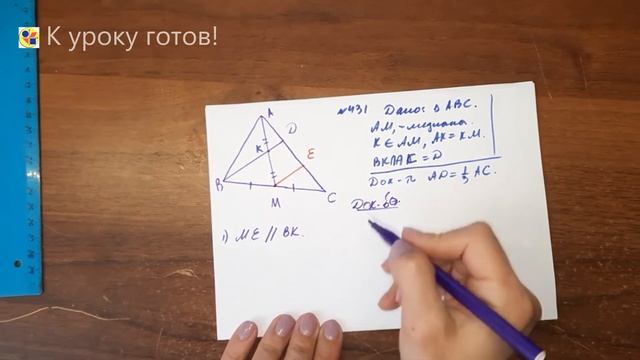 К уроку готов!
№431 Дано: Δ ABC.
AM, - медиана.
K ∈ AM, AK = KM.
BK ∩ AC = D
Док-ть AD = 1/3 AC.
Док-во.
1) ME // BK.
A
D
K
E
B
M
C